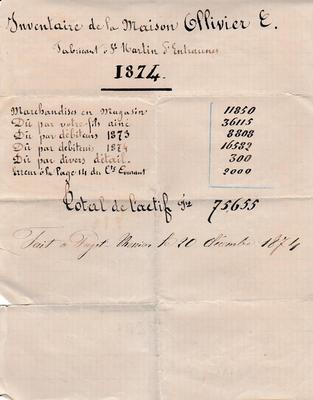 Inventaire de la Maison Ollivier E.
Fabricant à St Martin d'Entraunes
1874.
Marchandises en Magasin 11850
Dû par votre fils ainé 36115
Dû par débiteurs 1873 8808
Dû par débiteurs 1874 16582
Dû par divers détail. 300
Erreur à la Page 14 du Cte Courant 2000
Total de l'actif Frs 75655
Fait à Puget Théniers le 20 Décembre 1874